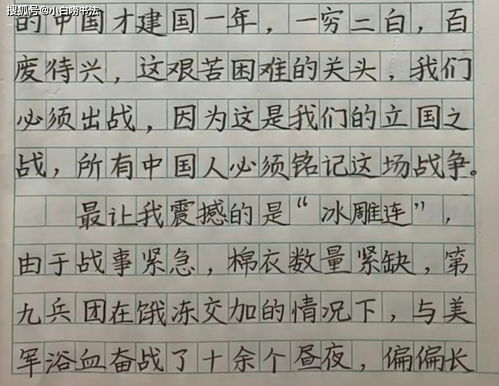 搜狐号@小白瞅书法
的中国才建国一年，一穷二白，百
废待兴，这艰苦困难的关头，我们
必须出战，因为这是我们的立国之
战，所有中国人必须铭记这场战争。
最让我震撼的是“冰雕连”，
由于战事紧急，棉衣数量紧缺，第
九兵团在饿冻交加的情况下，与美
军浴血奋战了十余个昼夜，偏偏长